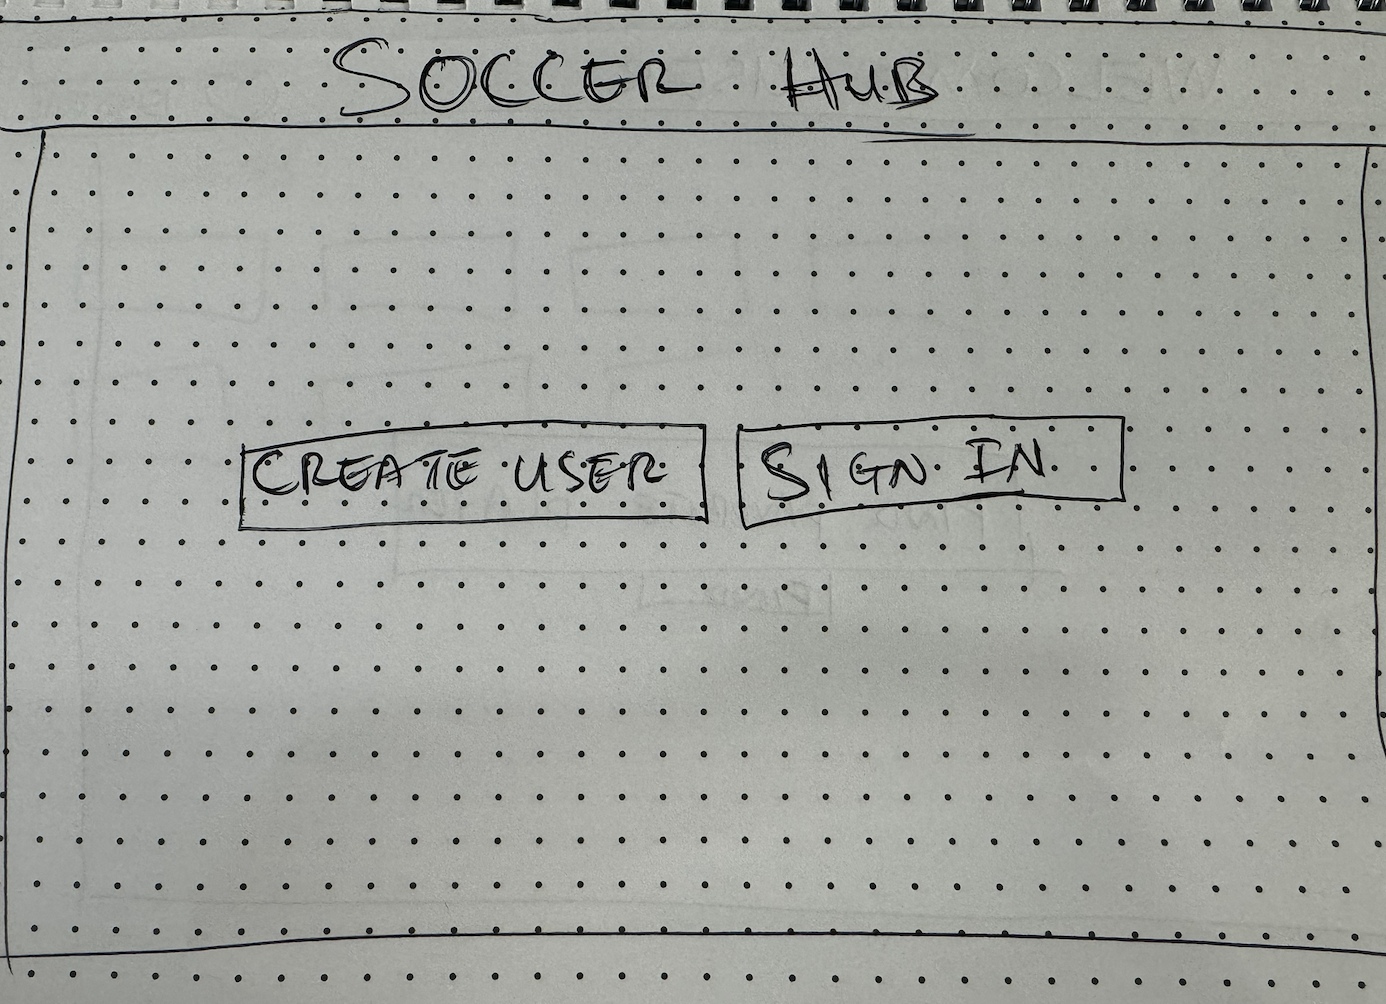 SOCCER HUB
CREATE USER
SIGN IN